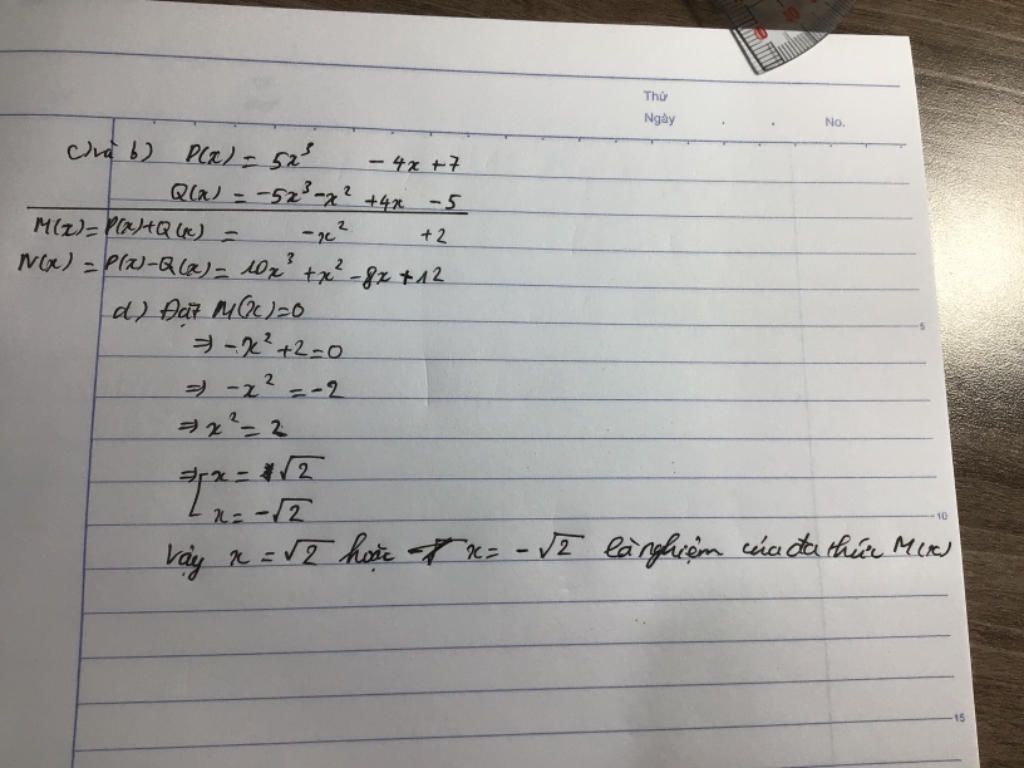 Thứ
Ngày . . No.
c) và b) P(x) = 5x³ - 4x + 7
Q(x) = -5x³ - x² + 4x - 5
M(x) = P(x) + Q(x) = -x² + 2
N(x) = P(x) - Q(x) = 10x³ + x² - 8x + 12
d) Đặt M(x) = 0
⇒ -x² + 2 = 0
⇒ -x² = -2
⇒ x² = 2
⇒ [ x = √2
x = -√2
Vậy x = √2 hoặc x = -√2 là nghiệm của đa thức M(x)
5
10
15